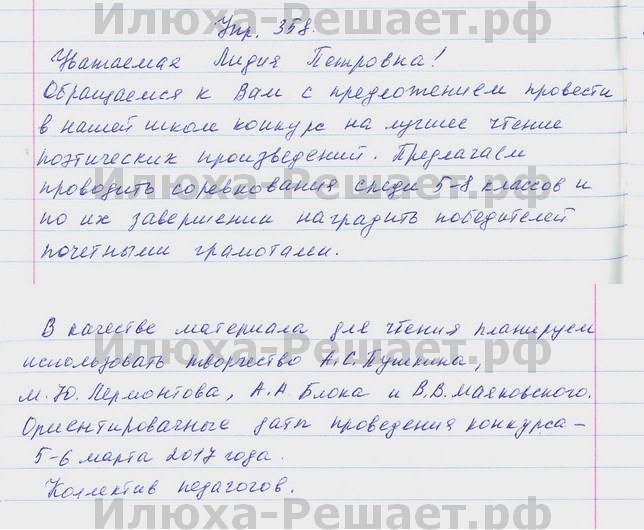 Илюха-Решает.рф
Упр. 358.
Уважаемая Лидия Петровна!
Обращаемся к Вам с предложением провести
в нашей школе конкурс на лучшее чтение
поэтических произведений. Предлагаем
проводить соревнования среди 5-8 классов и
по их завершении наградить победителей
почетными грамотами.
В качестве материала для чтения планируем
использовать творчество А.С. Пушкина,
М.Ю. Лермонтова, А.А. Блока и В.В. Маяковского.
Ориентировачные даты проведения конкурса –
5-6 марта 2017 года.
Коллектив педагогов.
Илюха-Решает.рф